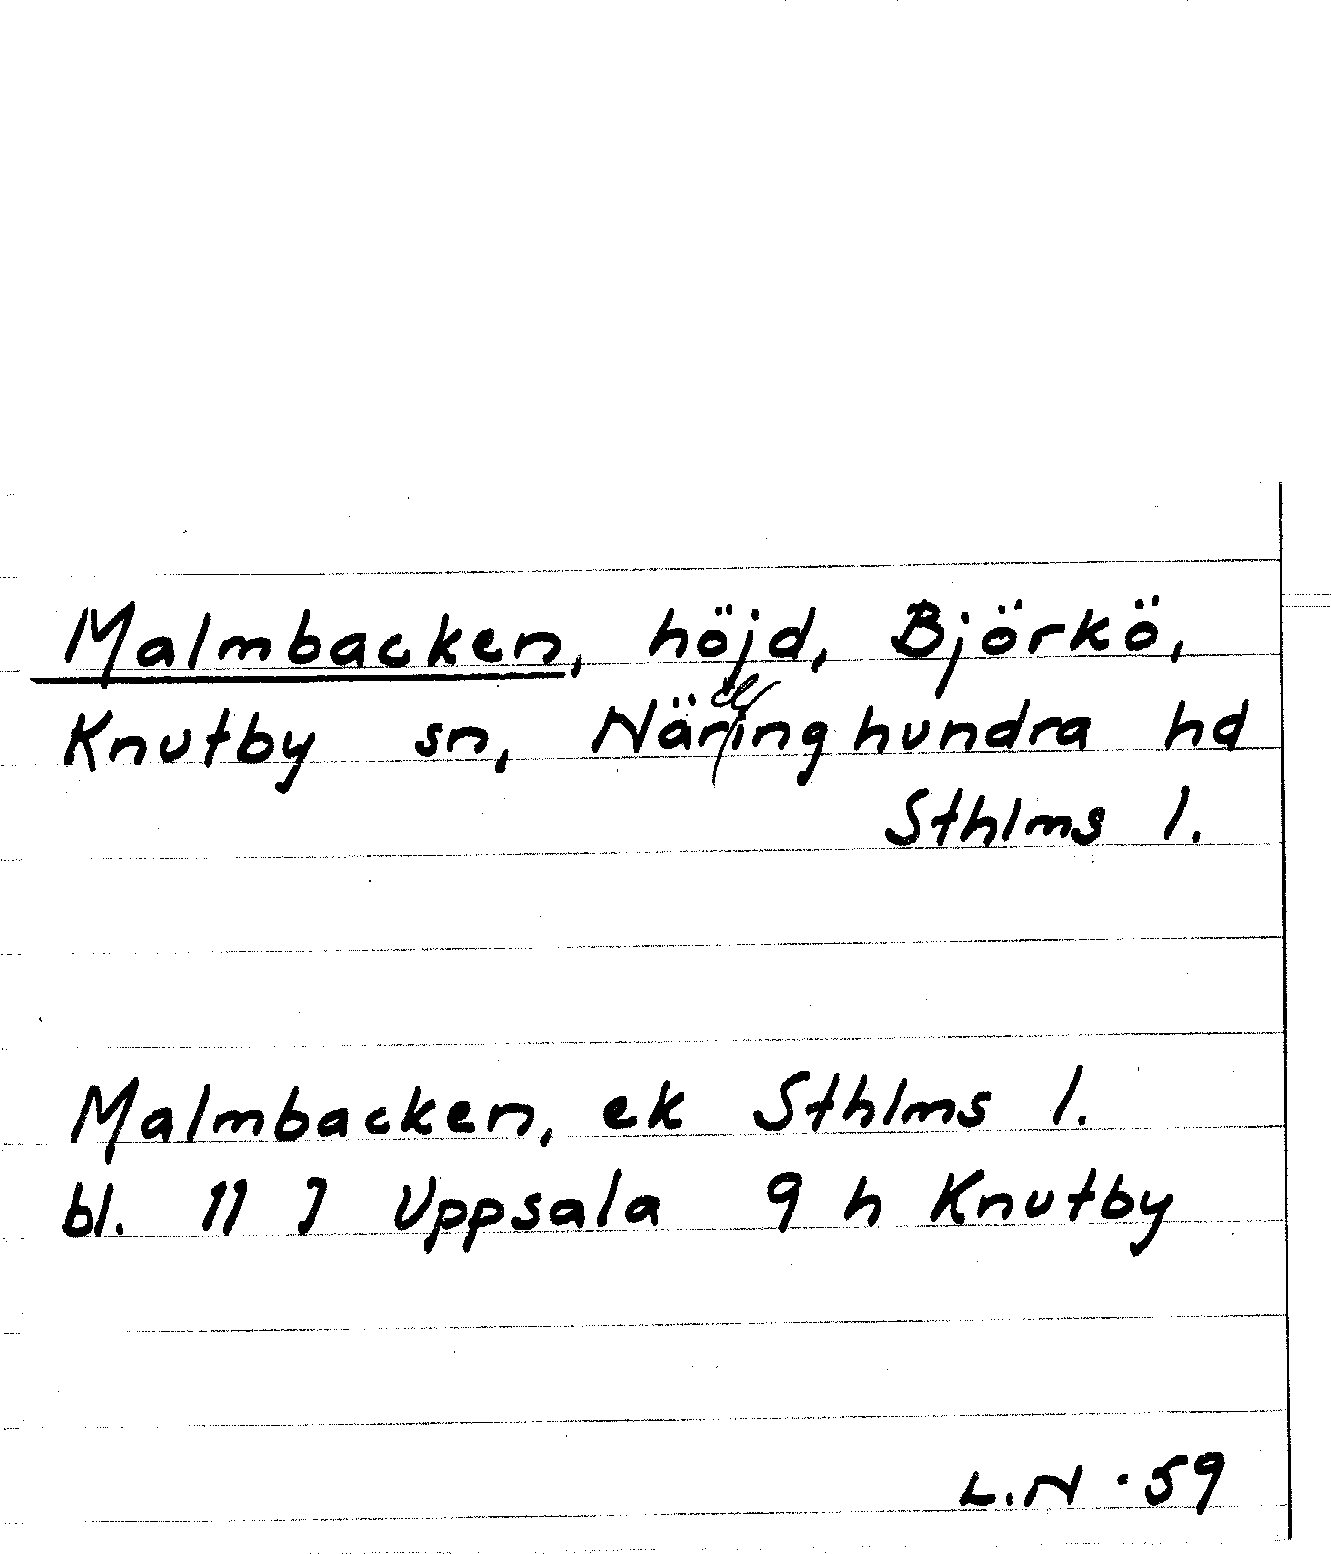 Malmbacken, höjd, Björkö,
Knutby sn, Närdinghundra hd
Sthlms l.
Malmbacken, ek Sthlms l.
bl. 11 J Uppsala 9 h Knutby
L.N. 59